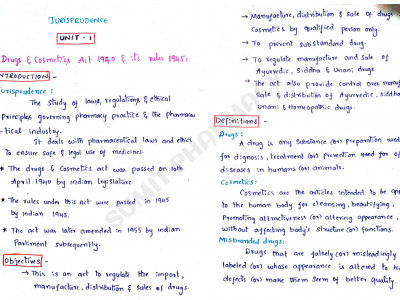 JURISPRUDENCE
UNIT - 1
Drugs & Cosmetics Act 1940 & its rules 1945:
NTRODUCTION -
Jurisprudence:
The study of laws, regulations & ethical
Principles governing pharmacy practice & the pharmaceu
-tical industry.
It deals with pharmaceutical laws and ethics
To ensure safe & legal use of medicines.
* The drugs & cosmetics act was passed on 10th
April 1940 by indian legislature
* The rules under this Act were passed in 1945
by indian 1945.
* The act was later amended in 1955 by Indian
Parliment subsequently.
Objectives -
→ This is an act to regulate the import,
manufacture, distribution & sales of drugs.
→ Manufacture, distribution & sale of drugs
Cosmetics by qualified person only.
→ To prevent substandard drug.
→ To regulate manufacture and sale of
Ayurvedic, Siddha & Unani drugs
→ The act also provide control over manuf
Sale & distribution of Ayurvedic, siddha
Unani & homeopathic drugs.
Definitions -
Drugs:
A drug is any substance (or) preparation used
for diagnosis, treatment (or) prevention used for of
diseases in humans (or) animals.
Cosmetics:
Cosmetics are the articles intended to be app
to the human body for cleansing, beautifying,
Promoting attractiveness (or) altering appearance,
without affecting body's structure (or) functions.
Misbranded drugs:
Drugs that are falsely (or) misleadingly
labeled (or) whose appearance is altered to hi
defects (or) make them seem of better quality.
SUMIT PHARMA